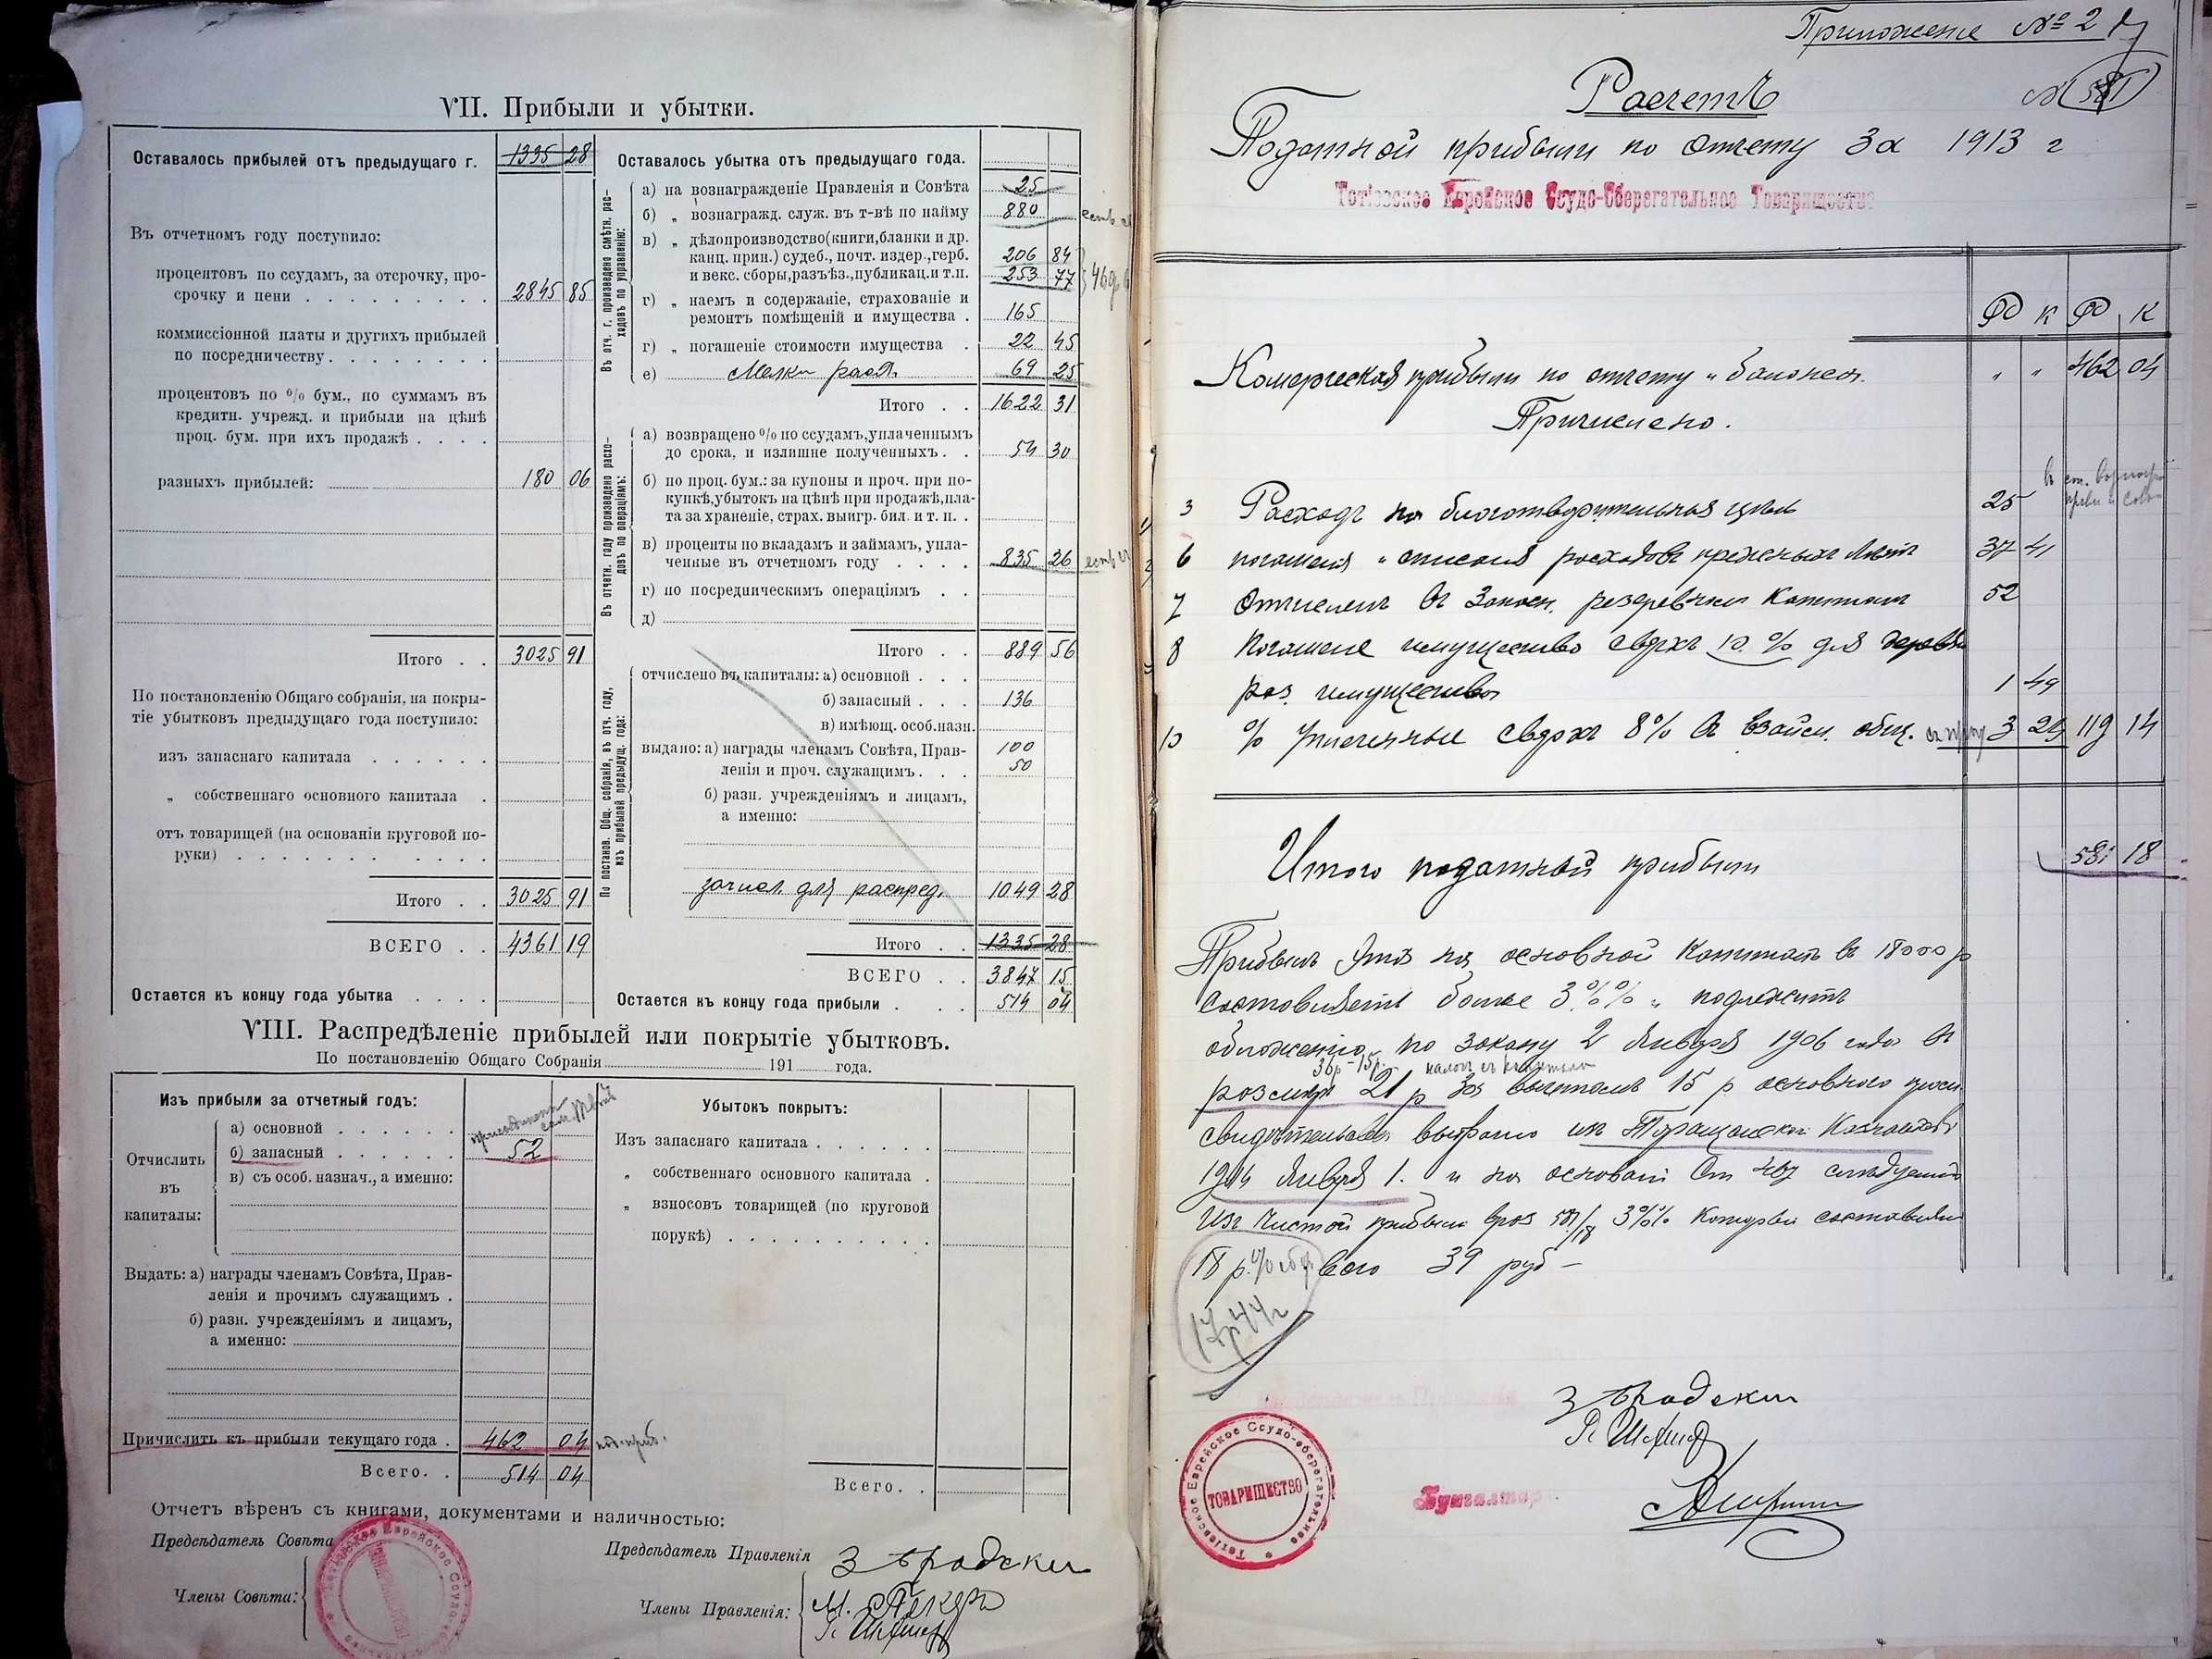 VII. Прибыли и убытки.
Оставалось прибылей отъ предыдущаго г. 1335 28
Въ отчетномъ году поступило:
процентовъ по ссудамъ, за отсрочку, про-
срочку и пени . . . 2845 85
коммиссіонной платы и другихъ прибылей
по посредничеству . . .
процентовъ по % бум., по суммамъ въ
кредитн. учрежд. и прибыли на цѣнѣ
проц. бум. при ихъ продажѣ . . . .
разныхъ прибылей: 180 06
Итого . . 3025 91
По постановленію Общаго собранія, на покры-
тіе убытковъ предыдущаго года поступило:
изъ запаснаго капитала . . .
„ собственнаго основного капитала .
отъ товарищей (на основаніи круговой по-
руки) . . .
Итого . . 3025 91
ВСЕГО . . 4361 19
Остается къ концу года убытка . . . .
Оставалось убытка отъ предыдущаго года.
Въ отч. г. произведено смѣтн. рас-
ходовъ по управленію:
а) на вознагражденіе Правленія и Совѣта 25
б) „ вознагражд. служ. въ т-вѣ по найму 880
в) „ дѣлопроизводство(книги,бланки и др.
канц. прин.) судеб., почт. издер.,герб. 206 84
и векс. сборы,разъѣз.,публикац.и т.п. 253 77
г) „ наемъ и содержаніе, страхованіе и
ремонтъ помѣщеній и имущества . 165
г) „ погашеніе стоимости имущества . 22 45
е) Мелки расх. 69 25
Итого . . 1622 31
Въ отчетн. году произведено расхо-
довъ по операціямъ:
а) возвращено % по ссудамъ,уплаченнымъ
до срока, и излишне полученныхъ . . 54 30
б) по проц. бум.: за купоны и проч. при по-
купкѣ,убытокъ на цѣнѣ при продажѣ,пла-
та за храненіе, страх. выигр. бил. и т. п. .
в) проценты по вкладамъ и займамъ, упла-
ченные въ отчетномъ году . . . . 835 26
г) по посредническимъ операціямъ . .
д)
Итого . . 889 56
По постанов. Общ. собранія, въ отч. году,
изъ прибылей предыдущ. года:
отчислено въ капиталы: а) основной . . .
б) запасный . . . 136
в) имѣющ. особ.назн.
выдано: а) награды членамъ Совѣта, Прав- 100
ленія и проч. служащимъ . . . 50
б) разн. учрежденіямъ и лицамъ,
а именно:
зачисл. для распред. 1049 28
Итого . . 1335 28
ВСЕГО . . 3847 15
Остается къ концу года прибыли . . . 514 04
VIII. Распредѣленіе прибылей или покрытіе убытковъ.
По постановленію Общаго Собранія 191 года.
Изъ прибыли за отчетный годъ:
Отчислить
въ
капиталы:
а) основной . . .
б) запасный . . . 52
в) съ особ. назнач., а именно:
Выдать: а) награды членамъ Совѣта, Прав-
ленія и прочимъ служащимъ .
б) разн. учрежденіямъ и лицамъ,
а именно:
Причислить къ прибыли текущаго года . 462 04
Всего. . 514 04
Убытокъ покрытъ:
Изъ запаснаго капитала . . .
„ собственнаго основного капитала .
„ взносовъ товарищей (по круговой
порукѣ) . . .
Всего. .
Отчетъ вѣренъ съ книгами, документами и наличностью:
Предсѣдатель Совѣта
Члены Совѣта:
Предсѣдатель Правленія З Бродски
Члены Правленія:
Приложение № 2
Расчетъ
Податной прибыли по отчету За 1913 г
Тетіевское Еврейское Ссудо-Сберегательное Товарищество
Р К Р К
Комерческая прибыли по отчету и балансу. „ „ 462 04
Причислено.
3 Расходъ на благотворительная цѣль 25
6 погашенія и списанія расходовъ прежныхъ лѣтъ 37 41
7 Отчисленъ въ Запасн. резервный Капиталъ 52
8 Погашене имущество сверхъ 10 % для дерев
раз. имущества 1 49
10 % уплоченные Сверхъ 8% въ взаймн. общ. 3 24 119 14
Итого податной прибыли 581 18
Прибыль эта на основной Капиталъ въ 18000 р
составляетъ более 3%% и подлежитъ
обложенію по закону 2 Января 1906 года въ
размѣрѣ 21 р За вычетомъ 15 р основного пром.
свидѣтельства выбрано изъ Таращанской Казначейства
1914 Января 1. и на основаніи Ст 467 слѣдуетъ
Изъ Чистой прибыли врoз 581/18 3%% Которые составили
18 р. всего 39 руб —
17р44к
З Бродски
Бухгалтеръ
Тетіевское Еврейское Ссудо-сберегательное
ТОВАРИЩЕСТВО